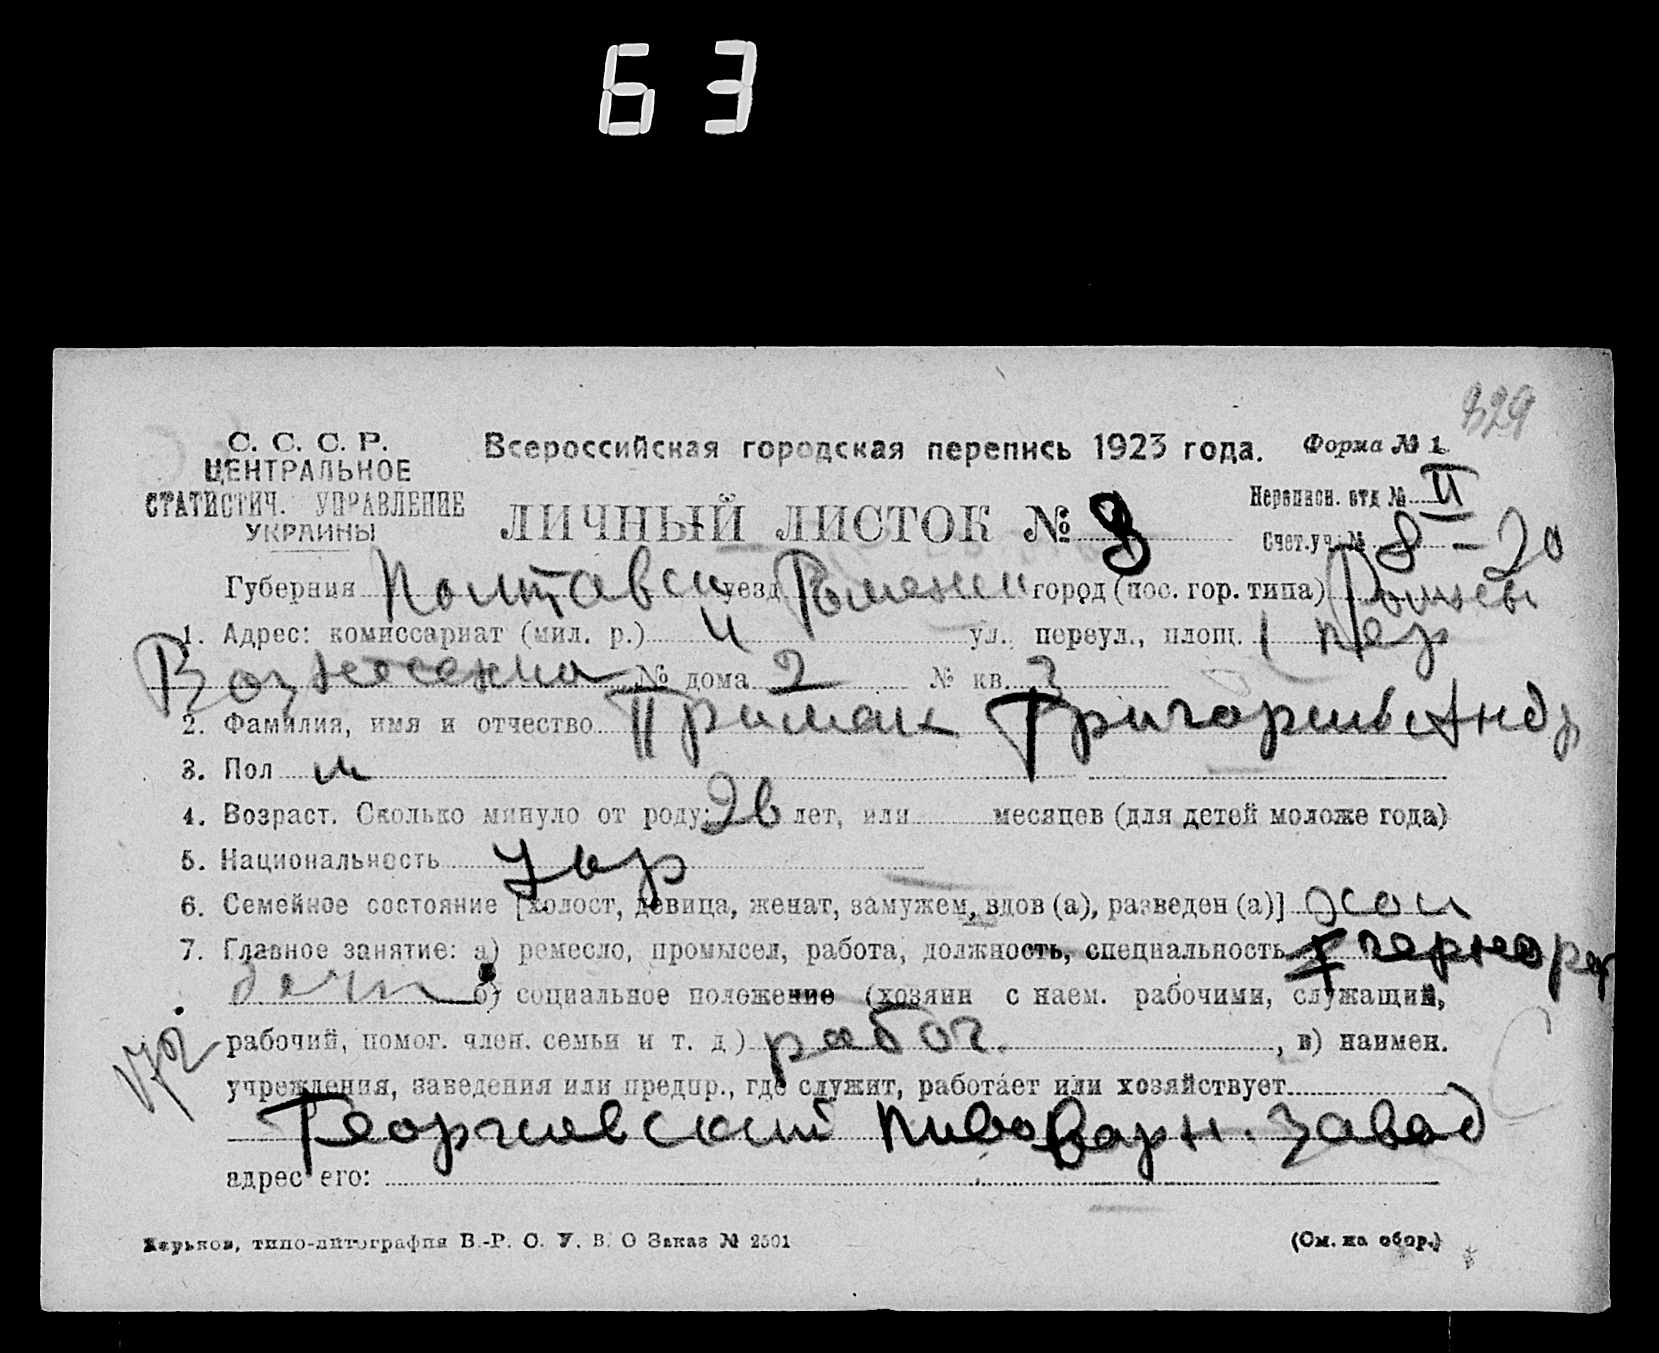 63
329
С. С. С. Р.
ЦЕНТРАЛЬНОЕ
СТАТИСТИЧ. УПРАВЛЕНИЕ
УКРАИНЫ
Всероссийская городская перепись 1923 года. Форма № 1.
ЛИЧНЫЙ ЛИСТОК № 8
Переписн. отд № II
Счет. уч. № 8 – 20
Губерния Полтавск уезд Роменск город (пос. гор. типа) Ромны
1. Адрес: комиссариат (мил. р.) ул., переул., площ. 1 пер
Вознесенск № дома 2 № кв. 3
2. Фамилия, имя и отчество Примак Григорий Андр
3. Пол м
4. Возраст. Сколько минуло от роду: 26 лет, или месяцев (для детей моложе года)
5. Национальность укр
6. Семейное состояние [холост, девица, женат, замужем, вдов (а), разведен (а)] хол
7. Главное занятие: а) ремесло, промысел, работа, должность, специальность чернораб
б) социальное положение (хозяин с наем. рабочими, служащий,
рабочий, помог. член. семьи и т. д) рабоч. , в) наимен.
учреждения, заведения или предпр., где служит, работает или хозяйствует
Георгиевский пивоварн. завод
адрес его:
Харьков, типо-литография В.-Р. С. У. В. О Заказ № 2501 (См. на обор.)